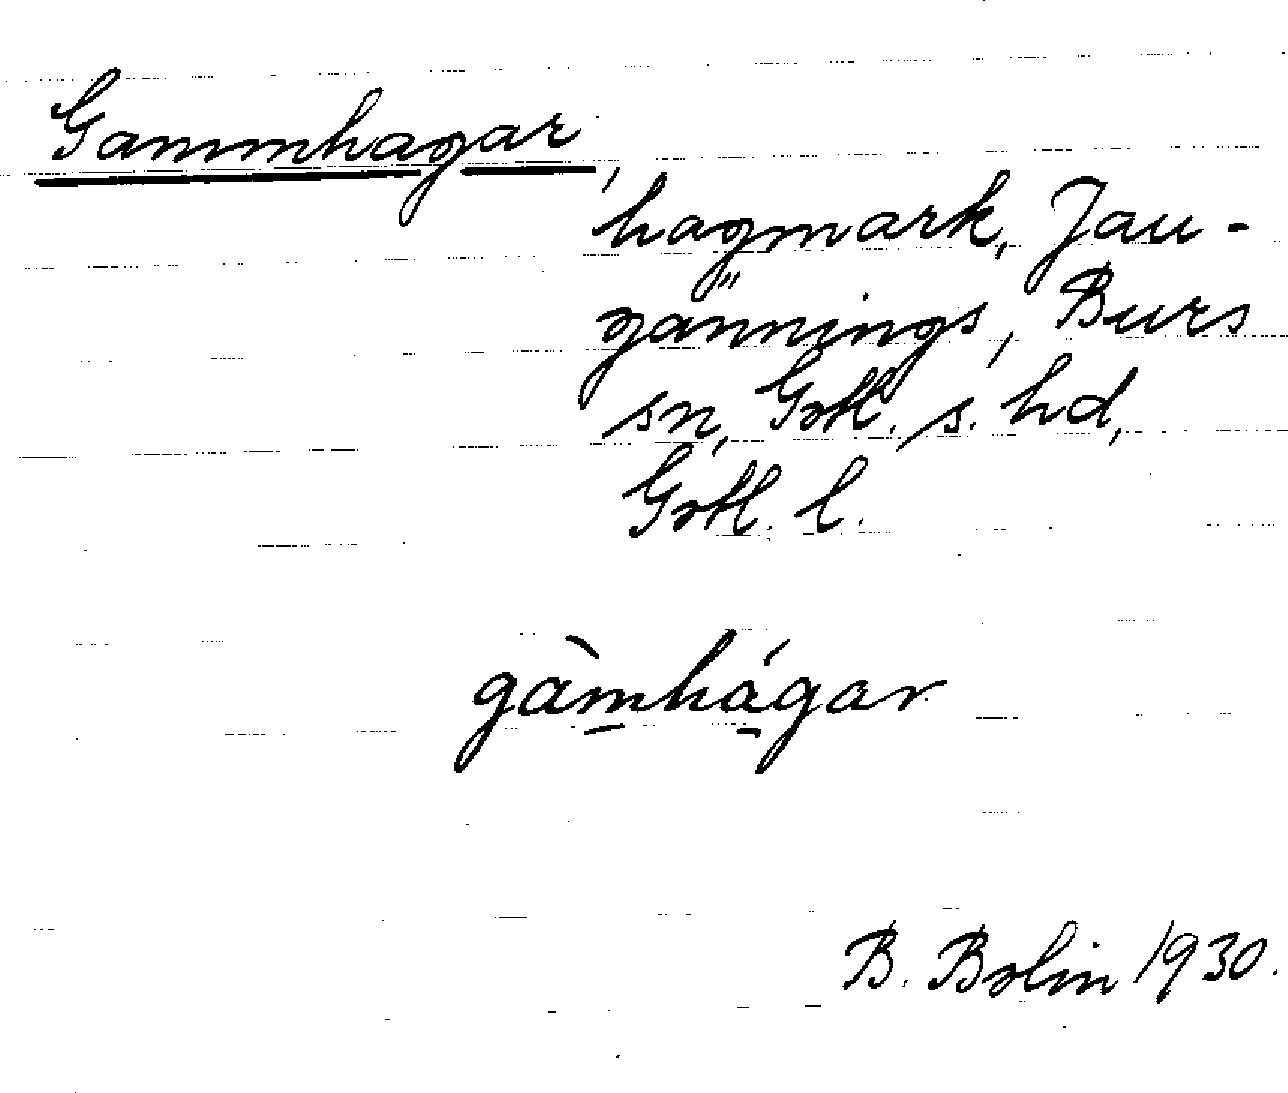 Gammhagar,
hagmark, Jau-
gännings, Burs
sn, Gotl. s. hd,
Gotl. l.
gàm̲há̲gar
B. Bolin 1930.